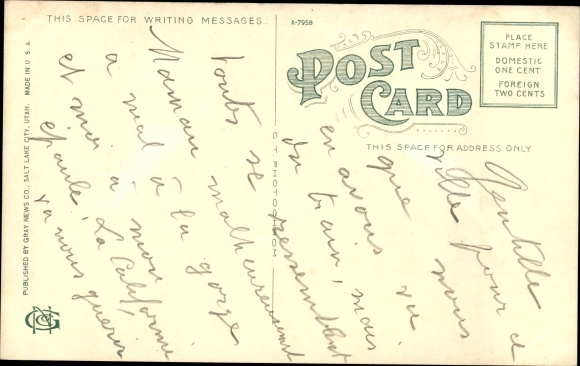 THIS SPACE FOR WRITING MESSAGES
A-7958
POST CARD
PLACE
STAMP HERE
DOMESTIC
ONE CENT
FOREIGN
TWO CENTS
THIS SPACE FOR ADDRESS ONLY
PUBLISHED BY GRAY NEWS CO., SALT LAKE CITY, UTAH. MADE IN U.S.A.
C T PHOTOCHROM
Gentille
ville pour ce
que nous
en avons vu
du train, mais
toutes se ressemblent
malheureusement
Maman
a mal à la gorge
et moi à mon
épaule, La Californie
va nous guérir